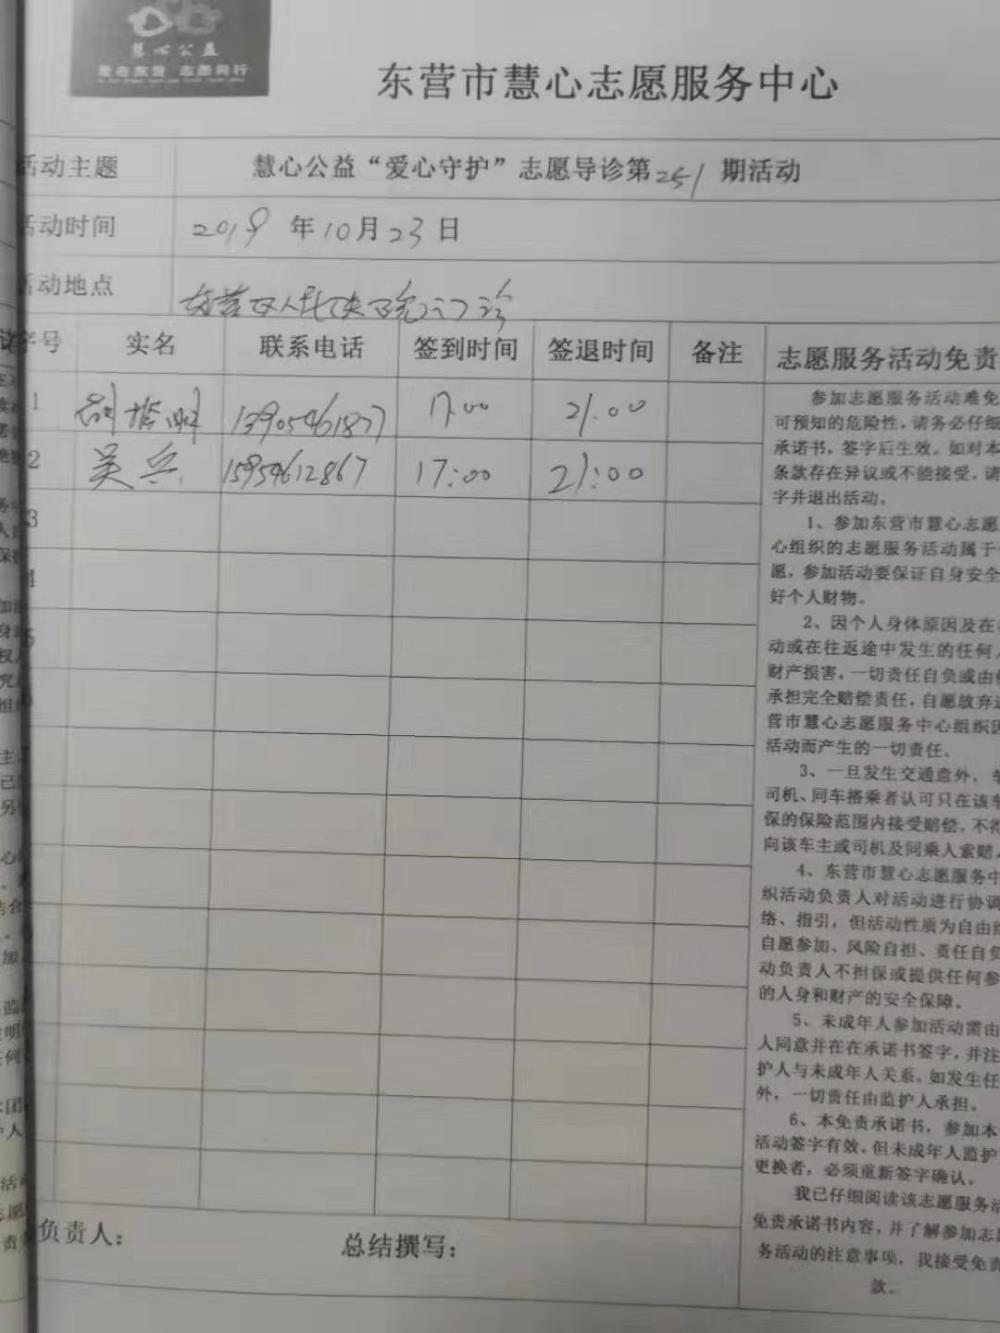 慧心公益
爱在东营 志愿同行
东营市慧心志愿服务中心
活动主题 慧心公益“爱心守护”志愿导诊第251期活动
活动时间 2019年10月23日
活动地点 东营区人民医院门诊
序号 实名 联系电话 签到时间 签退时间 备注 志愿服务活动免责
1 13905461877 17:00 21:00
2 吴兵 15954612867 17:00 21:00
3
4
5
参加志愿服务活动难免
可预知的危险性，请务必仔细
承诺书，签字后生效。如对本
条款存在异议或不能接受，请
字并退出活动。
1、参加东营市慧心志愿
心组织的志愿服务活动属于
愿，参加活动要保证自身安全
好个人财物。
2、因个人身体原因及在
动或在往返途中发生的任何
财产损害，一切责任自负或由
承担完全赔偿责任，自愿放弃
营市慧心志愿服务中心组织
活动而产生的一切责任。
3、一旦发生交通意外，
司机、同车搭乘者认可只在该车
保的保险范围内接受赔偿，不得
向该车主或司机及同乘人索赔。
4、东营市慧心志愿服务中
织活动负责人对活动进行协调
络、指引，但活动性质为自由
自愿参加、风险自担、责任自负
动负责人不担保或提供任何参
的人身和财产的安全保障。
5、未成年人参加活动需由
人同意并在在承诺书签字，并注
护人与未成年人关系。如发生任
外，一切责任由监护人承担。
6、本免责承诺书，参加本
活动签字有效。但未成年人监护
更换者，必须重新签字确认。
我已仔细阅读该志愿服务活
免责承诺书内容，并了解参加志
务活动的注意事项，我接受免责
款。
负责人： 总结撰写：